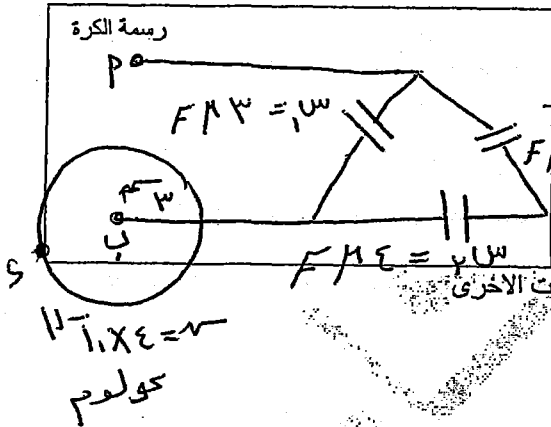 رسمة الكرة
P
س١ = ٣ μF
F
٣ سم
ب
س٢ = ٤ μF
ت الاخرى
كولوم